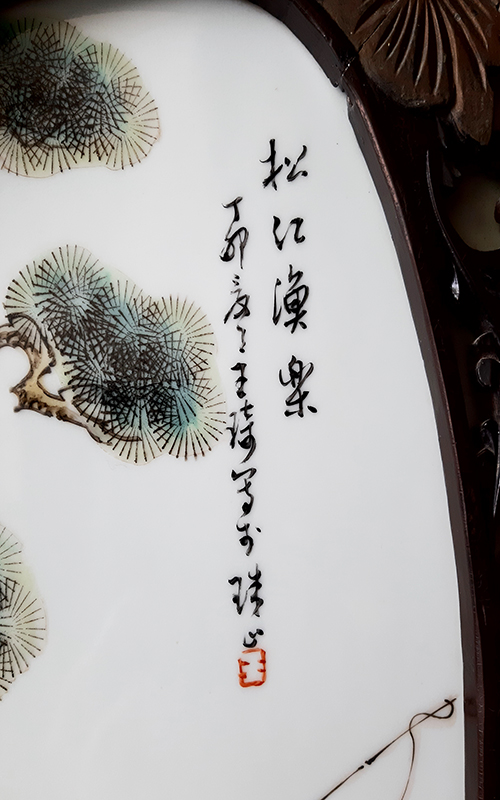 松江漁樂
丁卯夏之王琦写於珠山